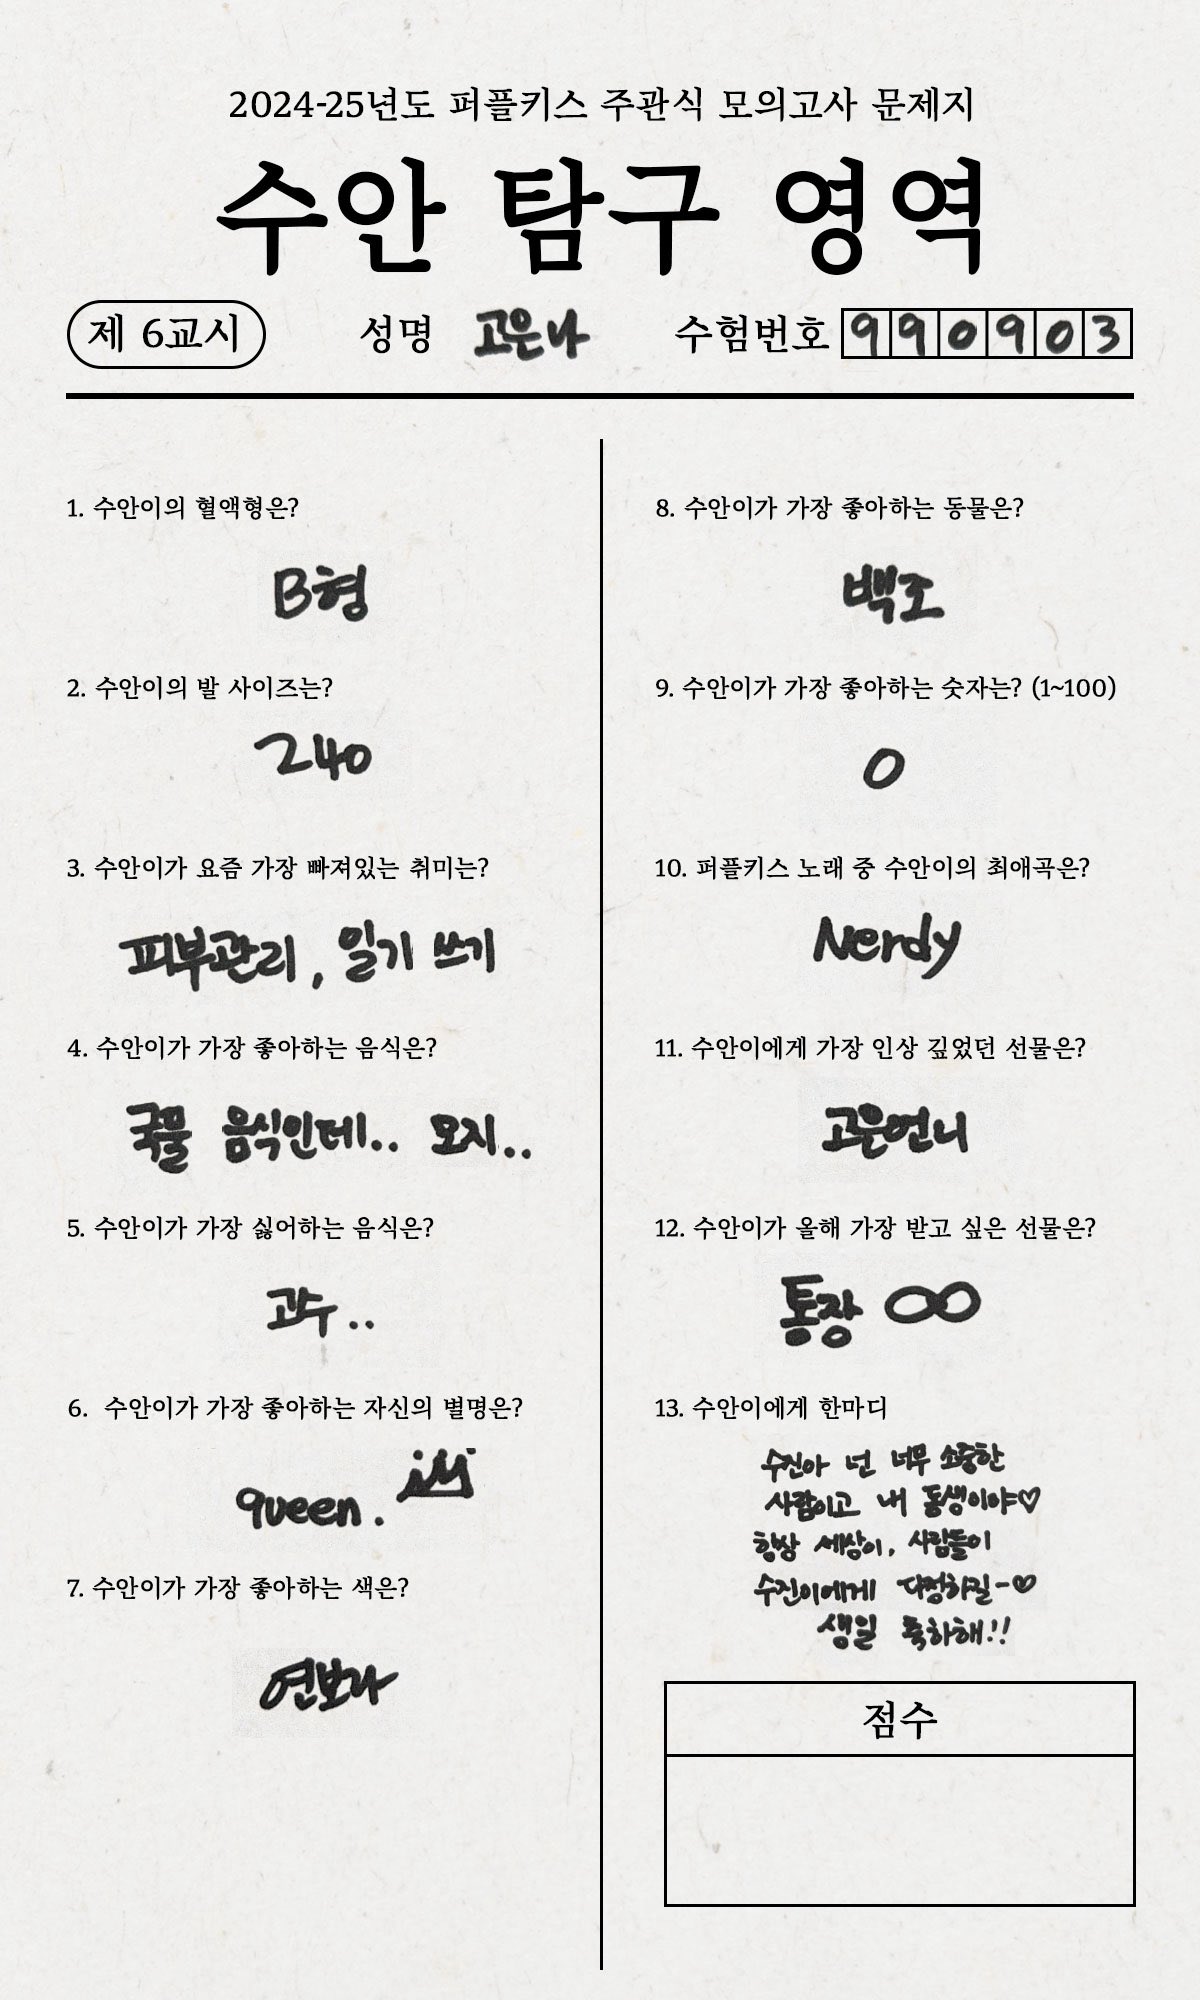 2024-25년도 퍼플키스 주관식 모의고사 문제지
수안 탐구 영역
제 6교시 성명 고은나 수험번호 990903
1. 수안이의 혈액형은?
B형
2. 수안이의 발 사이즈는?
240
3. 수안이가 요즘 가장 빠져있는 취미는?
피부관리, 일기 쓰기
4. 수안이가 가장 좋아하는 음식은?
국물 음식인데.. 모지..
5. 수안이가 가장 싫어하는 음식은?
고수..
6. 수안이가 가장 좋아하는 자신의 별명은?
queen.
7. 수안이가 가장 좋아하는 색은?
연보라
8. 수안이가 가장 좋아하는 동물은?
백조
9. 수안이가 가장 좋아하는 숫자는? (1~100)
0
10. 퍼플키스 노래 중 수안이의 최애곡은?
Nerdy
11. 수안이에게 가장 인상 깊었던 선물은?
고은언니
12. 수안이가 올해 가장 받고 싶은 선물은?
통장 ∞
13. 수안이에게 한마디
수진아 넌 너무 소중한
사람이고 내 동생이야♡
항상 세상이, 사람들이
수진이에게 다정하길-♡
생일 축하해!!
점수